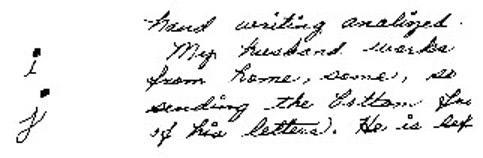 hand writing analized.
i
My husband works
from home, some, so
j
sending the bottom
of his letters). He is